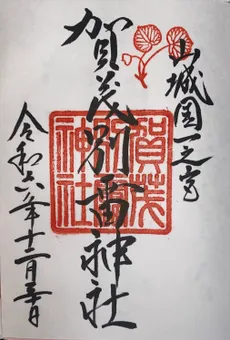 山城国一之宮
賀茂別雷神社
賀茂別雷神社
令和六年十二月五日